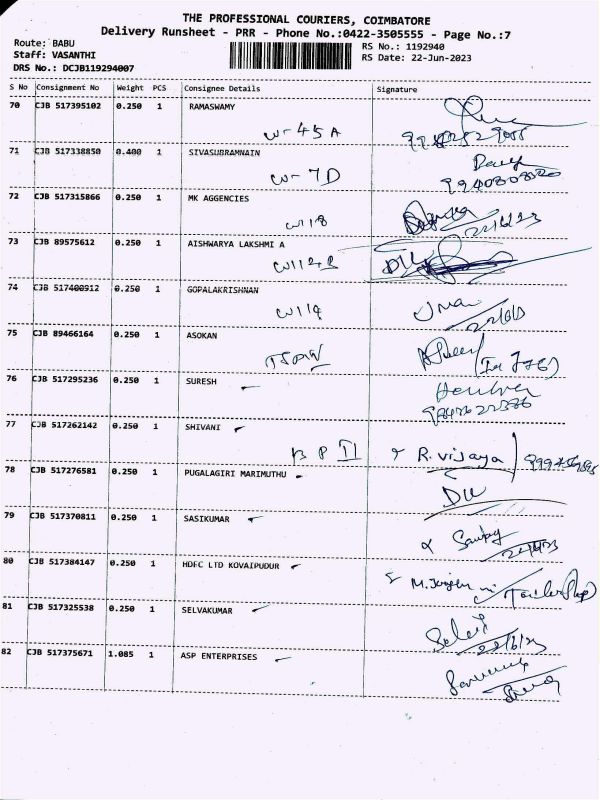 THE PROFESSIONAL COURIERS, COIMBATORE
Delivery Runsheet - PRR - Phone No.:0422-3505555 - Page No.:7
Route: BABU
RS No.: 1192940
Staff: VASANTHI
RS Date: 22-Jun-2023
DRS No.: DCJB119294007
S No Consignment No Weight PCS Consignee Details Signature
70 CJB 517395102 0.250 1 RAMASWAMY
W-45A
71 CJB 517338850 0.400 1 SIVASUBRAMNAIN
W-7D
72 CJB 517315866 0.250 1 MK AGGENCIES
W118 22/6/23
73 CJB 89575612 0.250 1 AISHWARYA LAKSHMI A
74 CJB 517400912 0.250 1 GOPALAKRISHNAN
W119
75 CJB 89466164 0.250 1 ASOKAN
76 CJB 517295236 0.250 1 SURESH
77 CJB 517262142 0.250 1 SHIVANI
B P II R. Vijaya
78 CJB 517276581 0.250 1 PUGALAGIRI MARIMUTHU
79 CJB 517370811 0.250 1 SASIKUMAR
80 CJB 517384147 0.250 1 HDFC LTD KOVAIPUDUR
81 CJB 517325538 0.250 1 SELVAKUMAR
22/6/23
82 CJB 517375671 1.085 1 ASP ENTERPRISES